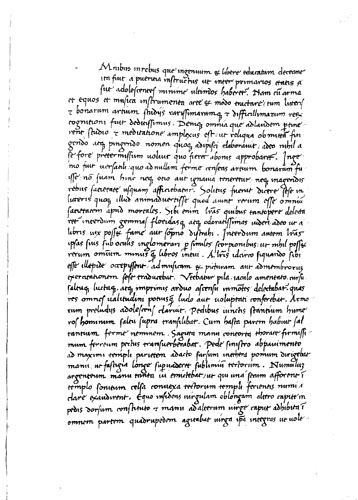 Mnibus in rebus que ingenuum & libere educatum deceant
ita fuit a pueritia instructus ut inter primarios etatis sue
adolescentes minime ultimus haberetur. Nam cum arma
et equos et musica instrumenta arte & modo tractare, tum litteris
& bonarum artium studiis rarissimarumque & difficillimarum rerum
cognitioni fuit deditissimus. Denique omnia que ad laudem pertinerent
studio & meditatione amplexus est. ut reliqua obmittam fingendo
atque pingendo nomen quoque adipisci elaboravit. adeo nihil a
se fore pretermissum voluit quo fieret bonis approbaretur. Ingenio
fuit versatili quo ad nullam ferme censeas artium bonarum fuisse
non suam. hinc neque otio aut ignavia tenebatur neque in agendis
rebus satietate usquam afficiebatur. Solitus fuerat dicere sese in
litteris quoque illud animadvertisse quod aiunt rerum esse omnium
satietatem apud mortales. Sibi enim litteras quibus tantopere delectaretur
interdum gemmas floridasque atque odoratissimas videri adeo ut a
libris vix posset fame aut somno distrahi. Interdum autem litteras
ipsas suis sub oculis inglomerari persimiles scorpionibus ut nihil posset
rerum omnium minus quam libros intueri. A litteris idcirco si quando sibi
esse illepide occepissent ad musicam & picturam aut ad membrorum
exercitationem sese traducebat. Utebatur pila iaculo amentato cursu
saltuque luctaque atque imprimis arduo ascensu in montes delectabatur. quas
res omnes valitudini potius quam ludo aut voluptati conferebat. Armorum
preludiis adolescens claruit. Pedibus iunctis stantium humeros
hominum saltu supra transilibat. Cum hasta parem habuit saltantium
ferme neminem. Sagitta manu contorta thorace firmissimum
ferreum pectus transverberabat. Pede sinistro ab pavimento
ad maximi templi parietem adacto sursum in ethera pomum dirigebat
manu ut fastigia longe supvaderet sublimium tectorum. Nummulum
argenteum manu tanta vi emittebat ut qui una secum afforent in
templo sonitum celsa convexa tectorum templi ferientis nummi
clare exaudirent. Equo insidens virgulam oblongam altero capite in
pedis dorsum constituto & manu ad alterum virge caput adhibita in
omnem partem quadrupedem agitabat virga ipsa integros ut vole